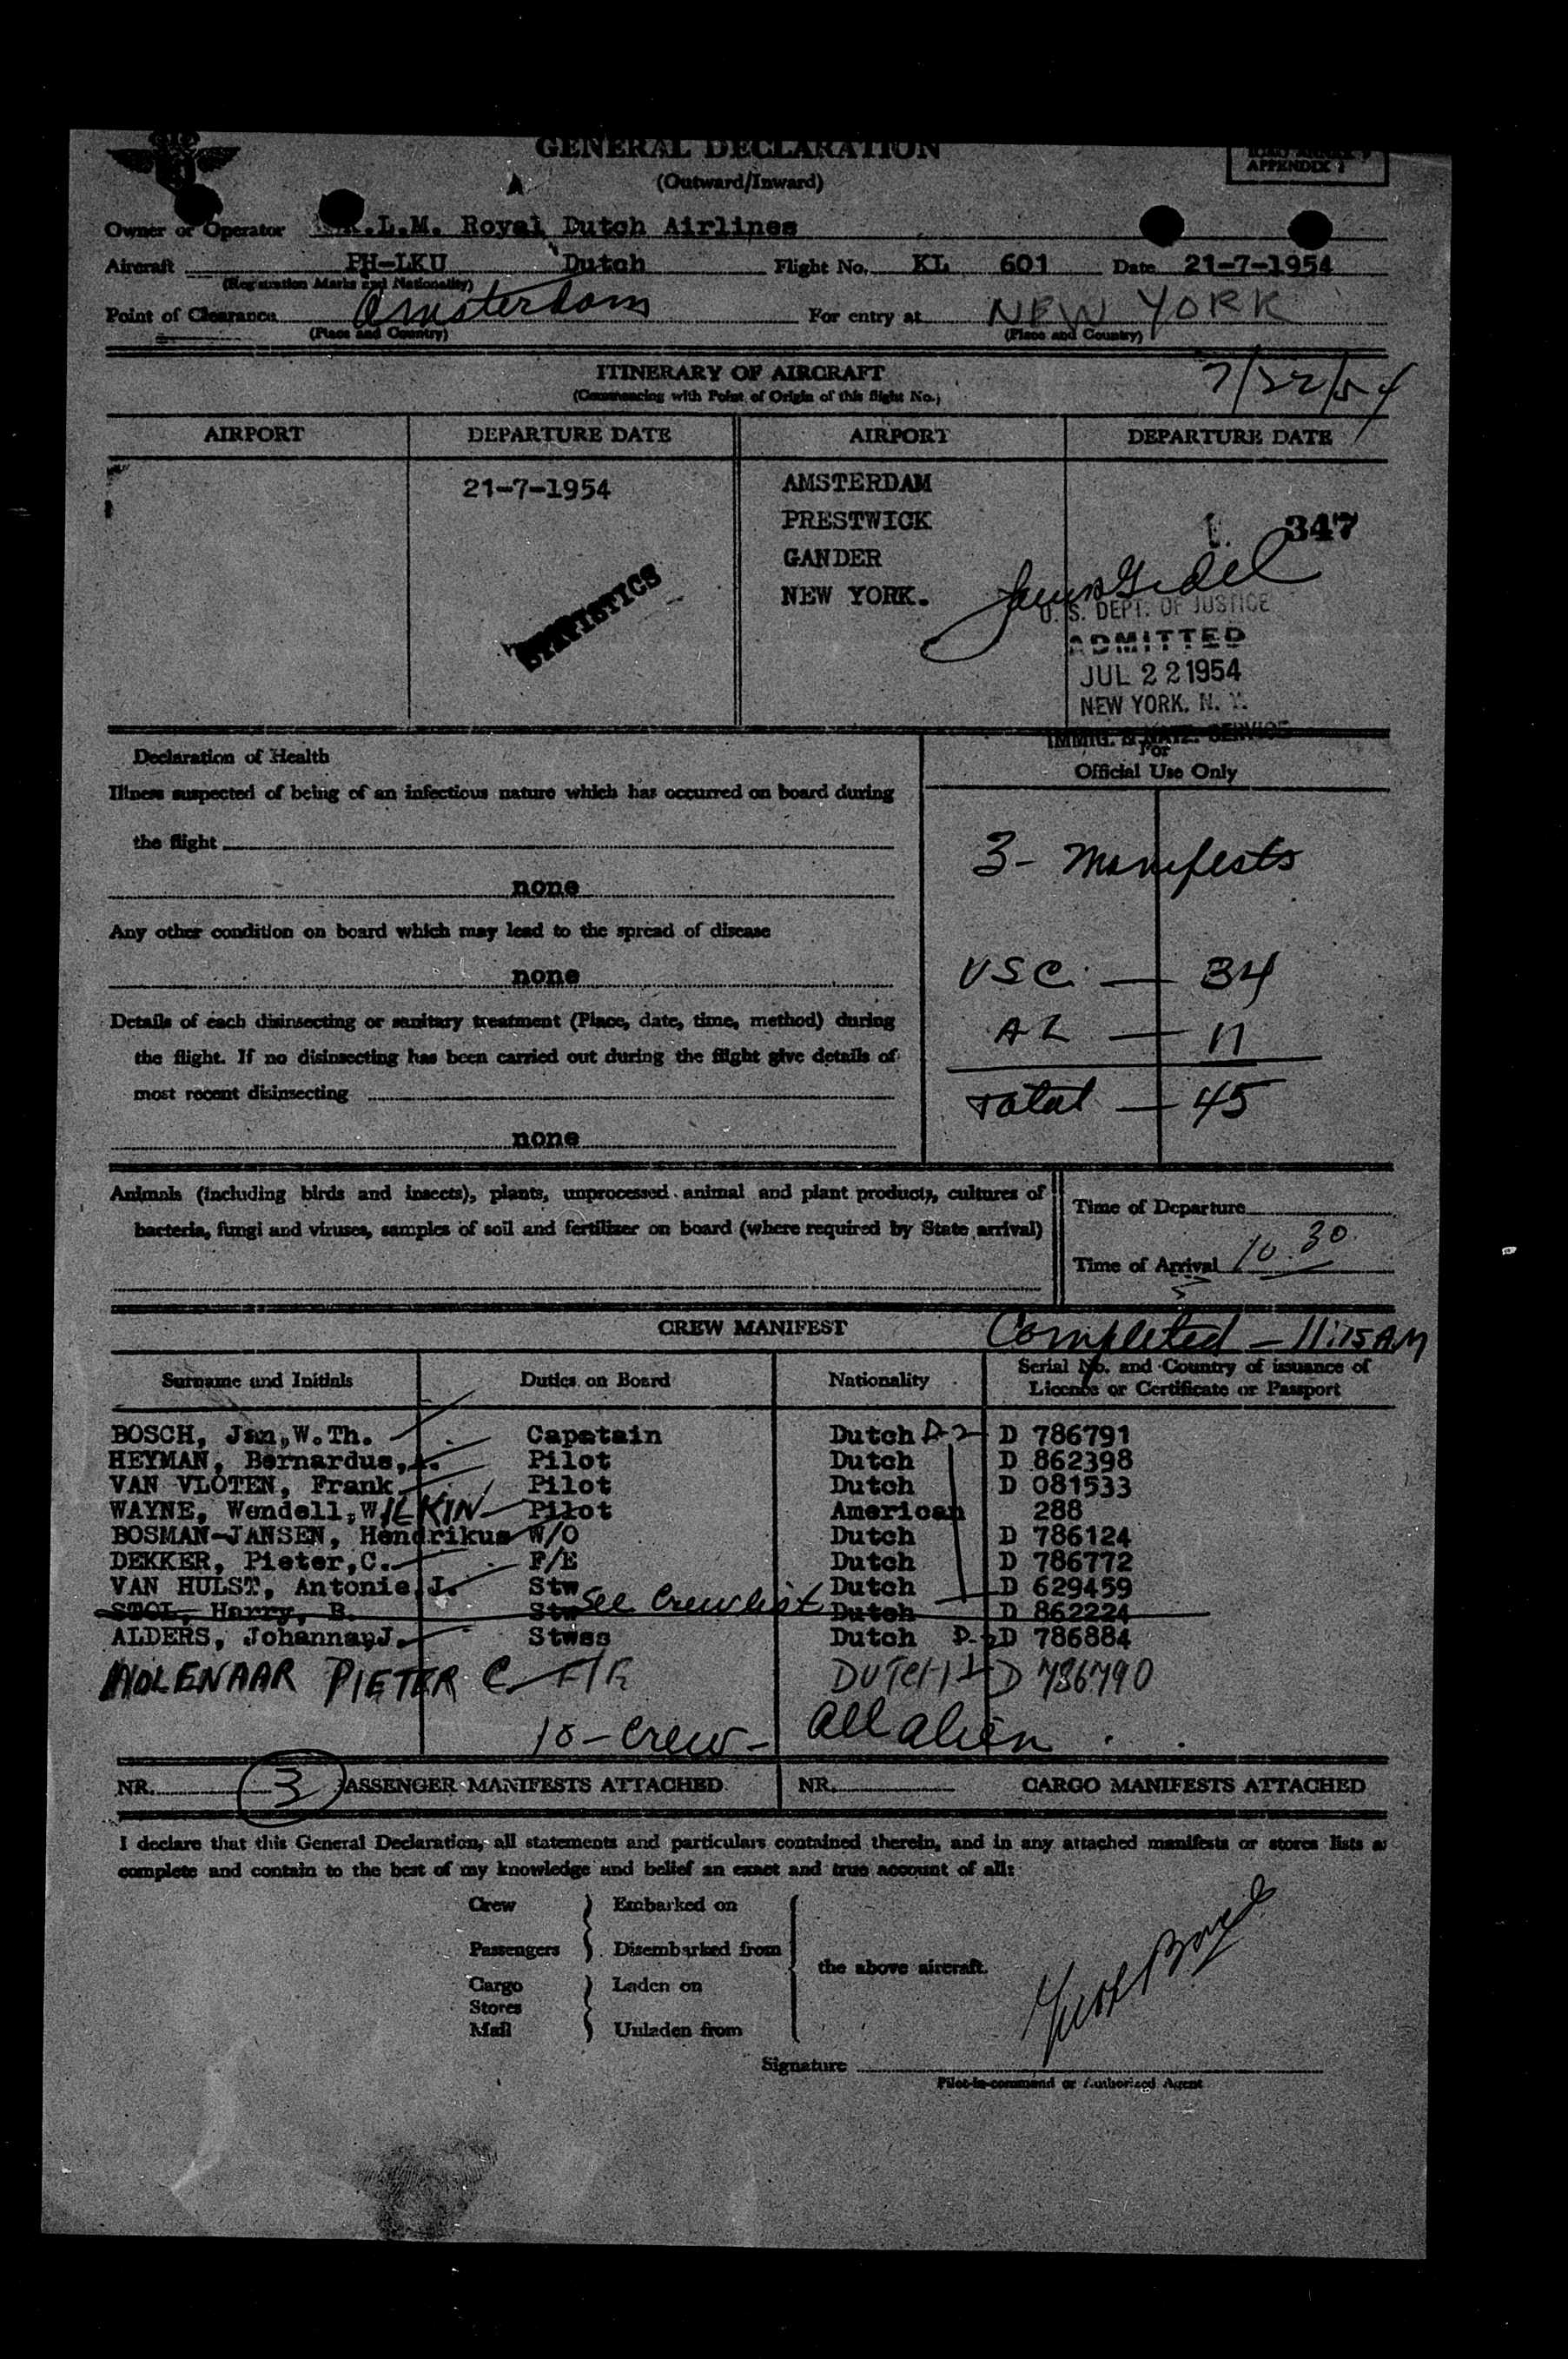 GENERAL DECLARATION
(Outward/Inward)
APPENDIX 1
Owner or Operator K.L.M. Royal Dutch Airlines
Aircraft PH-LKU Dutch Flight No. KL 601 Date 21-7-1954
(Registration Marks and Nationality)
Point of Clearance Amsterdam For entry at NEW YORK
(Place and Country) (Place and Country)
7/22/54
ITINERARY OF AIRCRAFT
(Commencing with Point of Origin of this flight No.)
AIRPORT DEPARTURE DATE AIRPORT DEPARTURE DATE
21-7-1954 AMSTERDAM
PRESTWICK 347
GANDER
NEW YORK.
STATISTICS
U. S. DEPT. OF JUSTICE
ADMITTED
JUL 22 1954
NEW YORK, N. Y.
IMMIG. & NATZ. SERVICE
Declaration of Health
For
Official Use Only
Illness suspected of being of an infectious nature which has occurred on board during
the flight
none
3 - Manifests
Any other condition on board which may lead to the spread of disease
none
USC. — 34
Details of each disinsecting or sanitary treatment (Place, date, time, method) during
the flight. If no disinsecting has been carried out during the flight give details of
most recent disinsecting
none
AL — 11
Total — 45
Animals (including birds and insects), plants, unprocessed animal and plant products, cultures of
bacteria, fungi and viruses, samples of soil and fertilizer on board (where required by State arrival)
Time of Departure
Time of Arrival 10 30
CREW MANIFEST
Completed - 11:15 AM
Surname and Initials Duties on Board Nationality Serial No. and Country of issuance of
Licence or Certificate or Passport
BOSCH, Jan,W.Th. Capatain Dutch D-2 D 786791
HEYMAN, Bernardus, Pilot Dutch D 862398
VAN VLOTEN, Frank Pilot Dutch D 081533
WAYNE, Wendell,WILKIN Pilot American 288
BOSMAN-JANSEN, Hendrikus W/O Dutch D 786124
DEKKER, Pieter,C. F/E Dutch D 786772
VAN HULST, Antonie,J. Stw Dutch D 629459
See Crew list
STOL, Harry, B. Stw Dutch D 862224
ALDERS, Johanna,J. Stwss Dutch D-2 D 786884
MOLENAAR PIETER C F/R DUTCH D 786790
10 - Crew - all alien
NR. 3 PASSENGER MANIFESTS ATTACHED NR. CARGO MANIFESTS ATTACHED
I declare that this General Declaration, all statements and particulars contained therein, and in any attached manifests or stores lists a
complete and contain to the best of my knowledge and belief an exact and true account of all:
Crew Embarked on
Passengers Disembarked from
the above aircraft.
Cargo Laden on
Stores
Mail Unladen from
Signature
Pilot-in-command or Authorized Agent